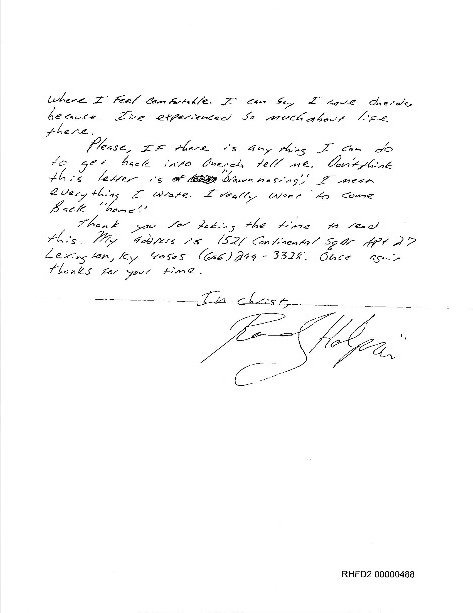 where I feel comfortable. I can say I love Oneida,
because I've experienced so much about life
there.
Please, IF there is any thing I can do
to get back into Oneida tell me. Don't think
this letter is "brownnosing", I mean
everything I wrote. I really want to come
Back "home".
Thank you for taking the time to read
this. My address is 1521 Continental Sq Dr APt 27
Lexington, Ky 40505 (606) 299-3328. Once again
thanks for your time.
In Christ,
RHFD2 00000488